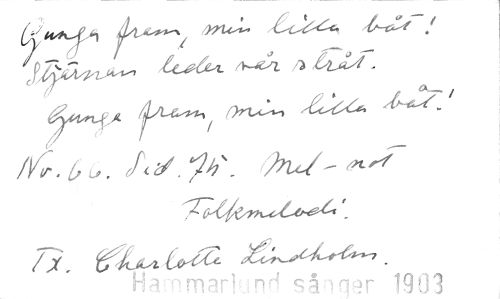 Gunga fram, min lilla båt!
Stjärnan leder vår stråt.
Gunga fram, min lilla båt!
No. 66. Sid. 75. Mel-not
Folkmelodi.
Tx. Charlotte Lindholm.
Hammarlund sånger 1903